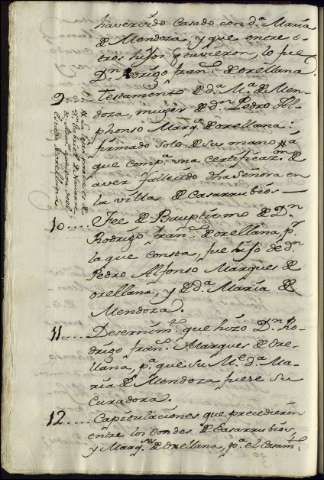 haverido Casado con d.ª María
de Mendoza, y que entre o
tros hijos q tuvieron, lo fue
D.n Rodrigo fran.co de orellana.
9 Testamento de d.ª M.ª de Men
doza, muger de d.n Pedro Al
phonso Marq.s de orellana:
firmado solo de su mano p.a
que comp.a una certificaz.on
aver fallecido dha señora en
la villa de Casarrubios
10 Fee de Bauptismo de D.n
Rodrigo fran.co de orellana p.r
la que consta, fue hijo de d.n
Pedro Alfonso Marques de
orellana, y de d.ª María de
Mendoza.
11 Discernim.to que hizo D.n Ro
drigo fran.co Marques de Ore
llana, p.a que su M.e d.ª Ma
ría de Mendoza, fuese su
Curadora.
12 Capitulaciones que precedieron
entre los Condes de Casarrubios,
y Marq.s de Orellana, p.a el Casam.to